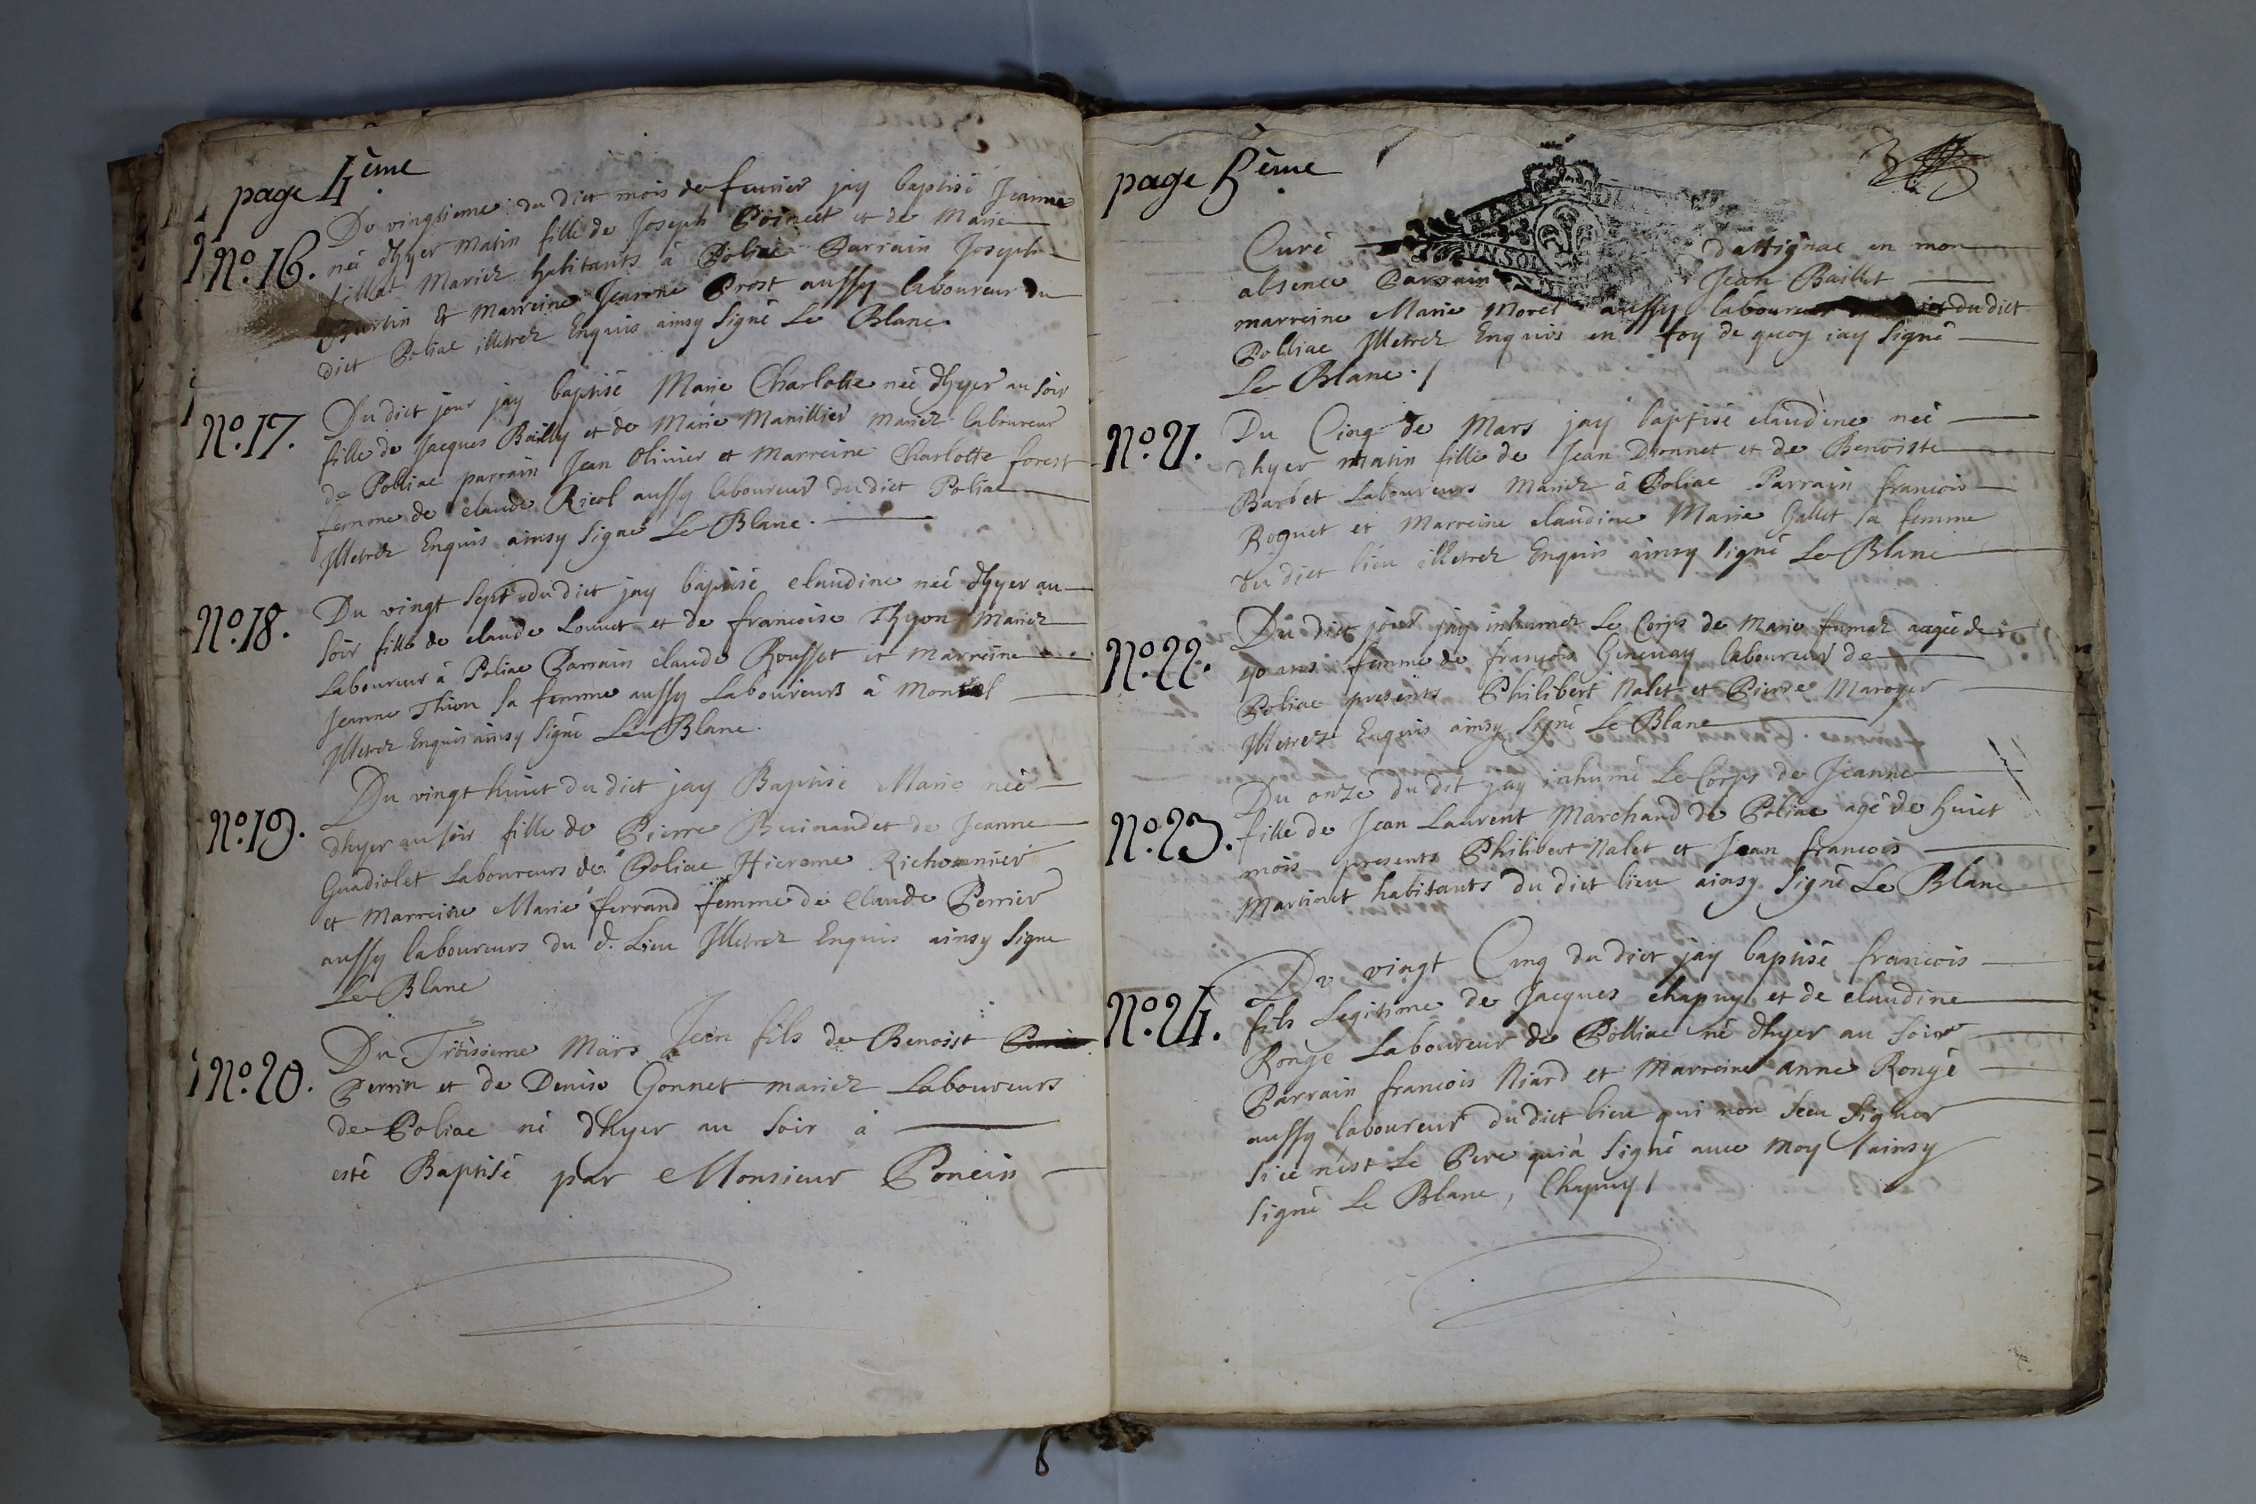 page 4ème
Du vingtieme du dict mois de feurier jay baptisé Jeanne
No. 16. neé dhyer matin fille de Joseph Poincet et de Marie
fillat Mariez habitants à Poliac Parrain Joseph
Burtin Et Marreine Jeanne Prost aussy laboureur du
dict Poliac illetrez Enquis ainsy Signé Le Blanc.
Du dict jour jay baptisé Marie Charlotte neé dhyer au soir
No. 17. fille de Jacques Bailly et de Marie Manillier mariez laboureur
de Polliac parrain Jean Olinier et Marreine Charlotte forest
femme de claude Ricol aussy laboureur du dict Poliac
Illetrez Enquis ainsy Signé Le Blanc.
Du vingt Sept du dict jay baptisé claudine neé dhyer au
No. 18. Soir fille de claude Louuet et de francoise Thyon Mariez
Laboureur à Poliac Parrain claude Rousset et Marreine
Jeanne Thion Sa femme aussy Laboureurs à Montcel
Illetrez Enquis ainsy Signé Le Blanc.
Du vingt huict du dict jay Baptisé Marie neé
No. 19. dhyer au soir fille de Pierre Buinand et de Jeanne
Guadiolet Laboureurs de Poliac Hierome Richonnier
et Marreine Marie ferrand femme de Claude Perrier
aussy laboureurs du d. Lieu Illetrez Enquis ainsy Signe
Le Blanc
Du Troisieme Mars Jean fils de Benoist
No. 20. Perrin et de Denise Gonnet mariez Laboureurs
de Poliac né dhyer au Soir à
esté Baptisé par Monsieur Poncin
page 5ème
VN SOL
Curé dattignac en mon
absence Parrain Jean Baillet
marreine Marie Morel aussy laboureur du dict
Polliac Illetrez Enquis en foy de quoy jay Signé
Le Blanc.
No. 21. Du Cinq de Mars jay baptisé claudine neé
dhyer matin fille de Jean Dronnet et de Benoiste
Barbet Laboureurs Mariez à Poliac Parrain francois
Roguet et Marreine claudine Marie Gallet sa femme
du dict lieu illetrez Enquis ainsy signé Le Blanc
Du dict jour jay inhumez Le Corps de Marie fumez aagée de
No. 22. 40 ans femme de françois Geneuay laboureur de
Poliac presents Philibert Nalet et Pierre Maroyer
Illetrez Enquis ainsy Signé Le Blanc
Du onze du dit jay inhumé Le Corps de Jeanne
No. 23. fille de Jean Laurent Marchand de Poliac agé de huict
mois presents Philibert Nalet et Jean francois
Martinet habitants du dict lieu ainsy Signé Le Blanc
Du vingt Cinq du dict jay baptisé francois
No. 24. fils Legitime de Jacques chapuy et de claudine
Rongé Laboureur de Polliac né dhyer au Soir
Parrain francois Niard et Marreine anne Rongé
aussy laboureur du dict lieu qui non Sceu Signer
Si ce nest Le Pere qui à Signé auec Moy ainsy
Signé Le Blanc, Chapuy